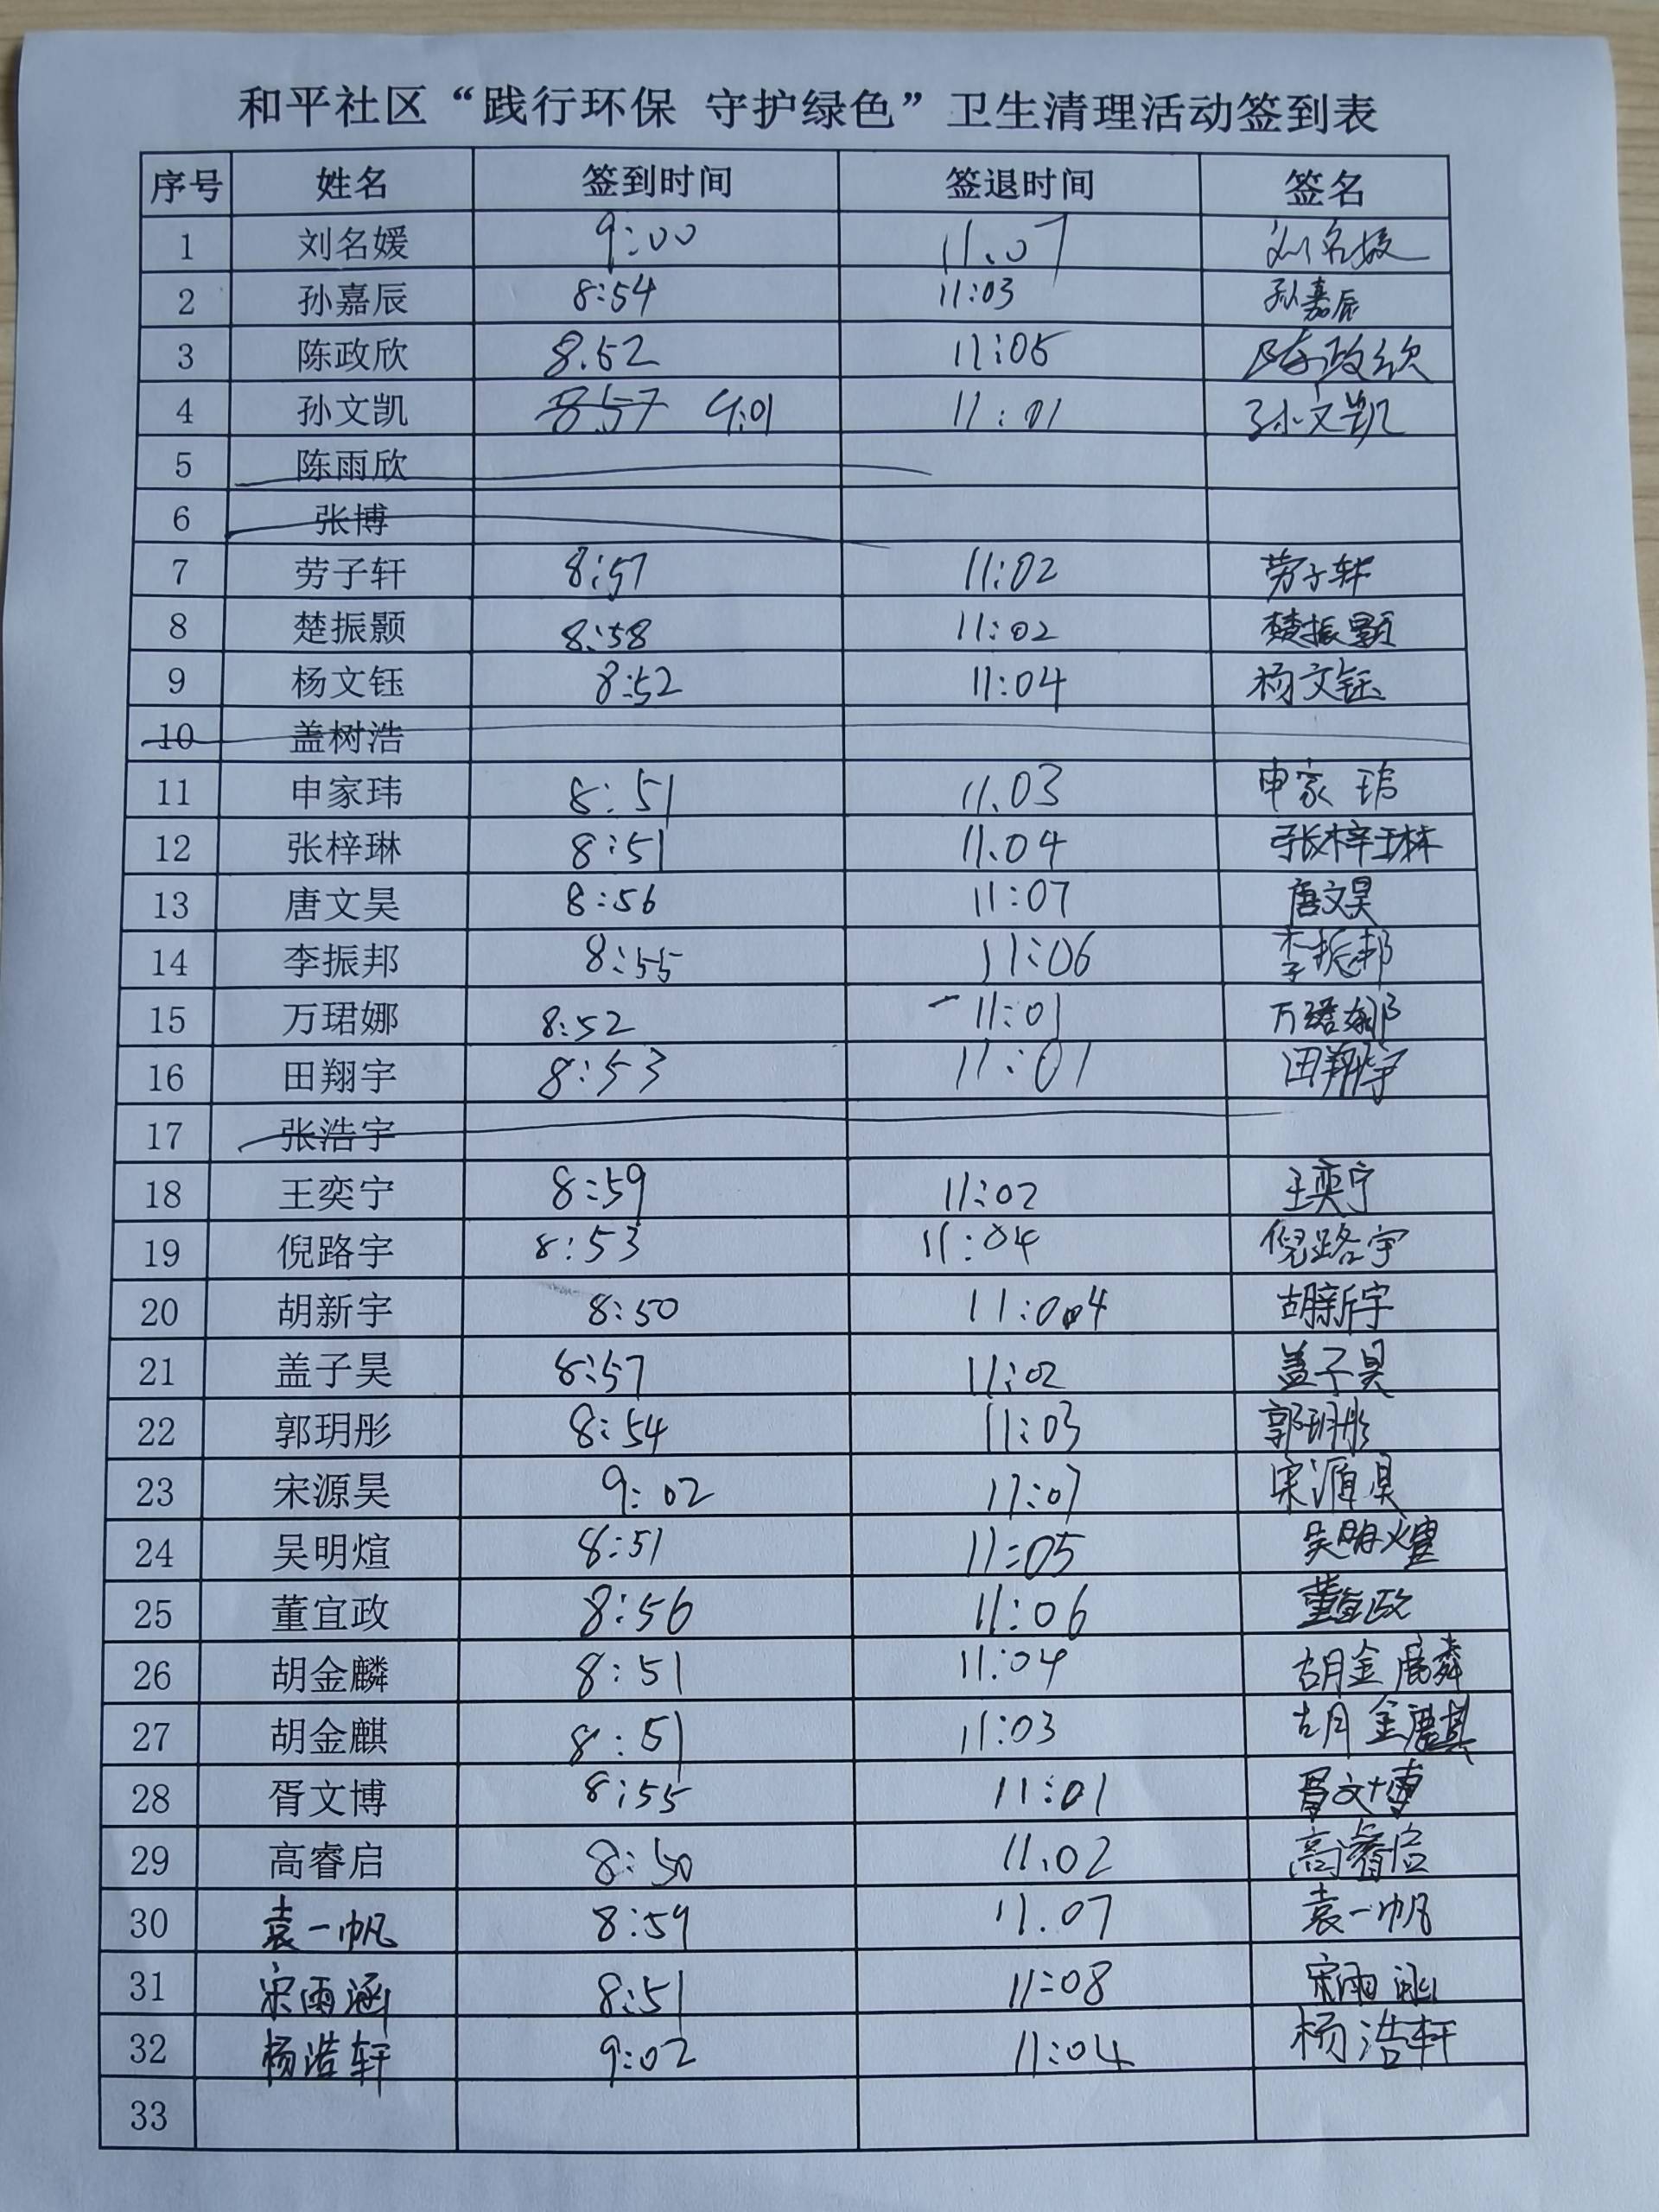 和平社区“践行环保 守护绿色”卫生清理活动签到表
序号 姓名 签到时间 签退时间 签名
1 刘名媛 9:00 11.07 刘名媛
2 孙嘉辰 8:54 11:03 孙嘉辰
3 陈政欣 8.52 11:05 陈政欣
4 孙文凯 8.57 9:01 11:01 孙文凯
5 陈雨欣
6 张博
7 劳子轩 8:57 11:02 劳子轩
8 楚振颢 8:58 11:02 楚振颢
9 杨文钰 8:52 11:04 杨文钰
10 盖树浩
11 申家玮 8:51 11.03 申家玮
12 张梓琳 8:51 11.04 张梓琳
13 唐文昊 8:56 11:07 唐文昊
14 李振邦 8:55 11:06 李振邦
15 万珺娜 8:52 11:01 万珺娜
16 田翔宇 8:53 11:01 田翔宇
17 张浩宇
18 王奕宁 8:59 11:02 王奕宁
19 倪路宇 8:53 11:04 倪路宇
20 胡新宇 8:50 11:04 胡新宇
21 盖子昊 8:57 11:02 盖子昊
22 郭玥彤 8:54 11:03 郭玥彤
23 宋源昊 9:02 11:07 宋源昊
24 吴明煊 8:51 11:05 吴明煊
25 董宜政 8:56 11:06 董宜政
26 胡金麟 8:51 11:04 胡金麟
27 胡金麒 8:51 11:03 胡金麒
28 胥文博 8:55 11:01 胥文博
29 高睿启 8:50 11.02 高睿启
30 袁一帆 8:59 11.07 袁一帆
31 宋雨涵 8:51 11:08 宋雨涵
32 杨浩轩 9:02 11:04 杨浩轩
33